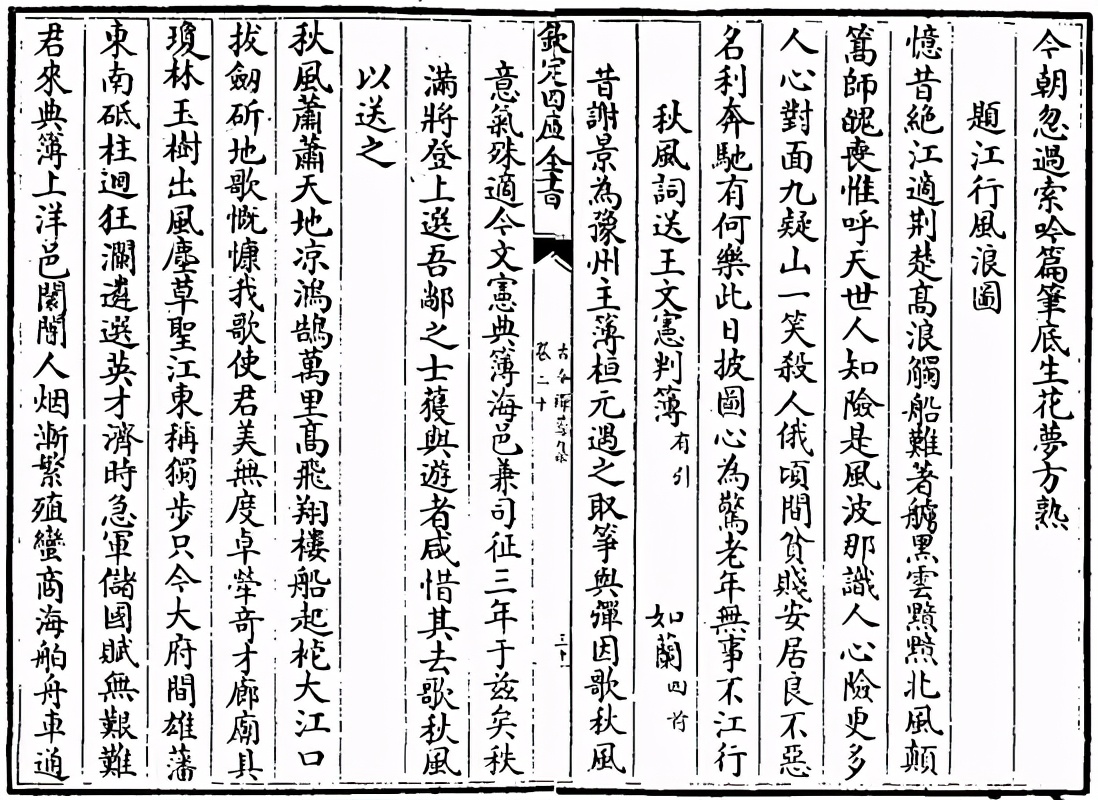 今朝忽過索吟篇筆底生花夢方熟
題江行風浪圖
憶昔絶江適荆楚髙浪觸船難著艣黒雲黯黯北風顛
篙師魄喪惟呼天世人知險是風波那識人心險更多
人心對面九疑山一笑殺人俄頃間貧賤安居良不惡
名利奔馳有何樂此日披圖心為驚老年無事不江行
秋風詞送王文憲判簿有引 如蘭四首
昔謝景為豫州主簿桓元遇之取筝與彈因歌秋風
欽定四庫全書 卷二十
意氣殊適今文憲典簿海邑兼司征三年于兹矣秩
滿將登上選吾鄰之士獲與遊者咸惜其去歌秋風
以送之
秋風蕭蕭天地凉鴻鵠萬里髙飛翔樓船起柁大江口
拔劒斫地歌慨慷我歌使君美無度卓犖竒才廊廟具
瓊林玉樹出風塵草聖江東稱獨步只今大府間雄藩
東南砥柱迴狂瀾遴選英才濟時急軍儲國賦無艱難
君來典簿上洋邑闤闠人烟漸繁殖蠻商海舶舟車通